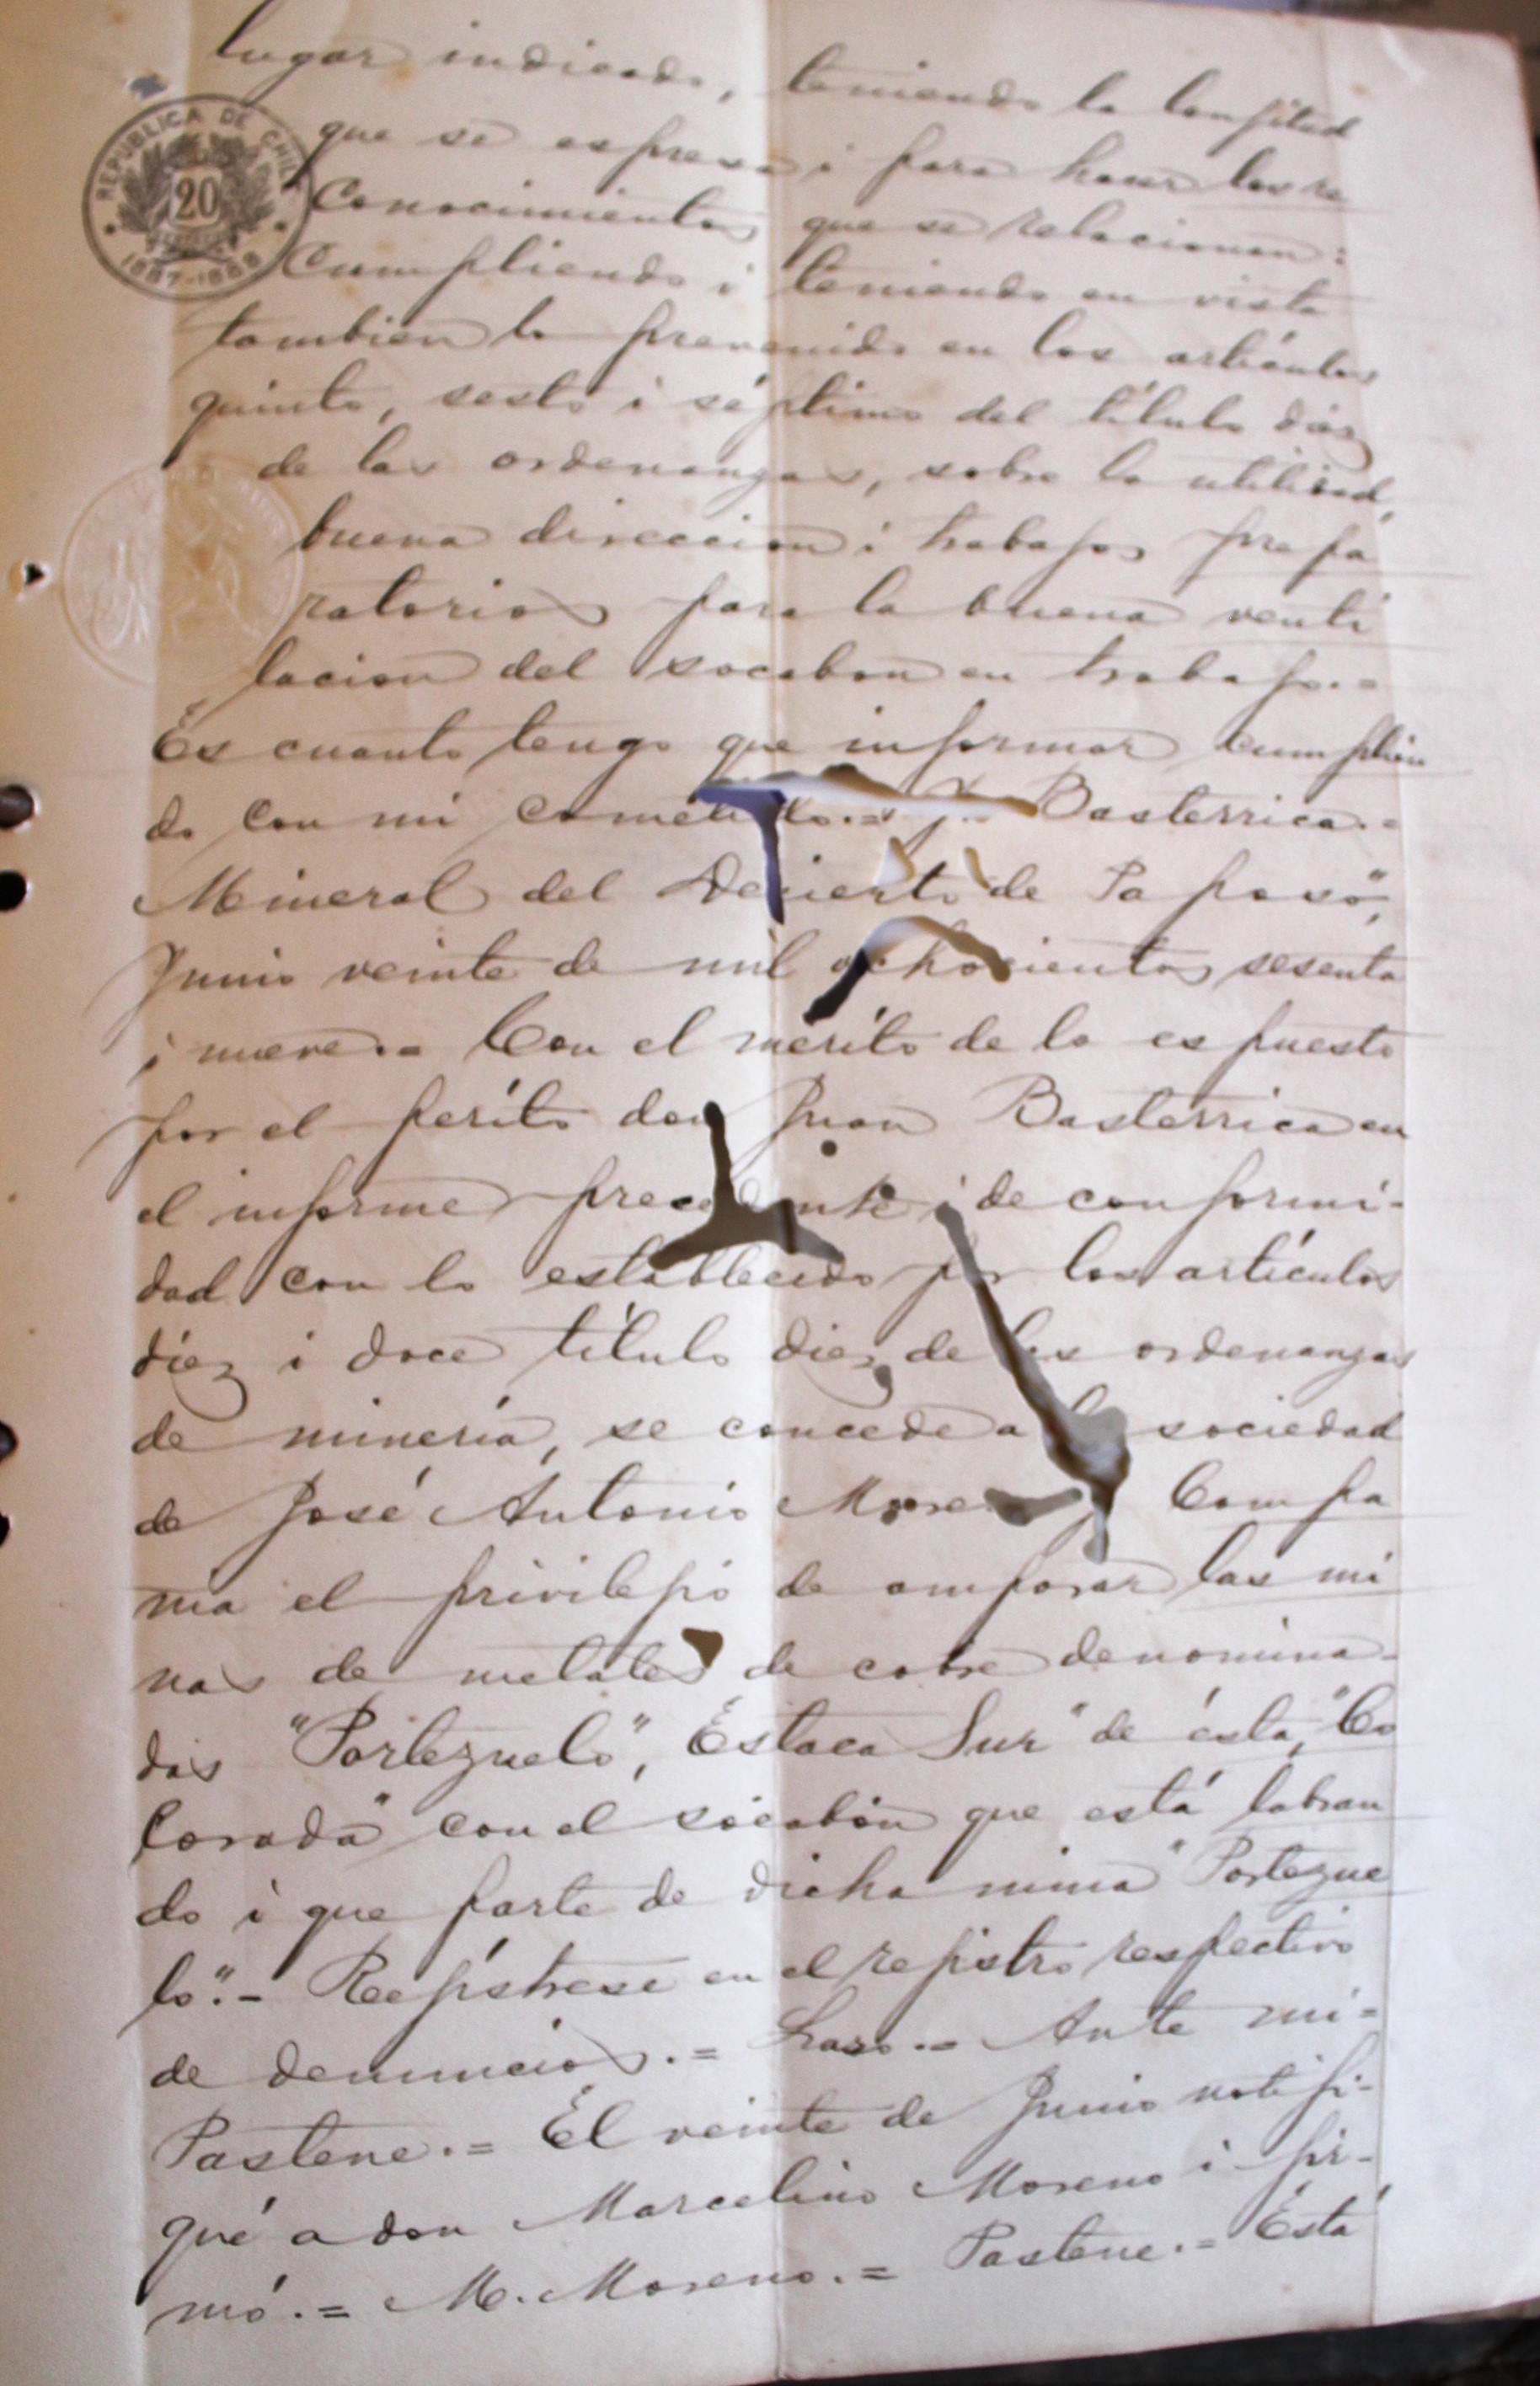 lugar indicado, teniendo la lonjitud
que se espresa i para hacer los re
REPUBLICA DE CHILE
20
1887-1888
Conocimientos que se relacionan:
Cumpliendo i teniendo en vista
tambien lo prevenido en los artículos
quinto, sesto i séptimo del título diez
de las ordenanzas, sobre la utilidad,
buena direccion i trabajos prepa
ratorios para la buena venti
lacion del socabon en trabajo.=
Es cuanto tengo que informar cumplien
do con mi cometido.= J. Basterrica.=
Mineral del Decierto de Paposo",
Junio veinte de mil ochocientos sesenta
i nueve.= Con el mérito de lo espuesto
por el périto don Juan Basterrica en
el informe precedente i de conformi-
dad con lo establecido por los artículos
diez i doce título diez de las ordenanzas
de minería, se concede a la sociedad
de José Antonio Moreno Compa
nia el privilejio de amparar las mi
nas de metales de cobre denomina-
das "Portezuelo", Estaca Sur" de ésta, "Co
lorada" con el socabón que está labran
do i que parte de dicha mina "Portezue
lo".- Rejístrese en el rejistro respectivo
de denuncios.= Laso.= Ante mi=
Pastene.= El veinte de Junio notifi-
qué a don Marcelino Moreno i fir-
mó.= M. Moreno.= Pastene.= Está